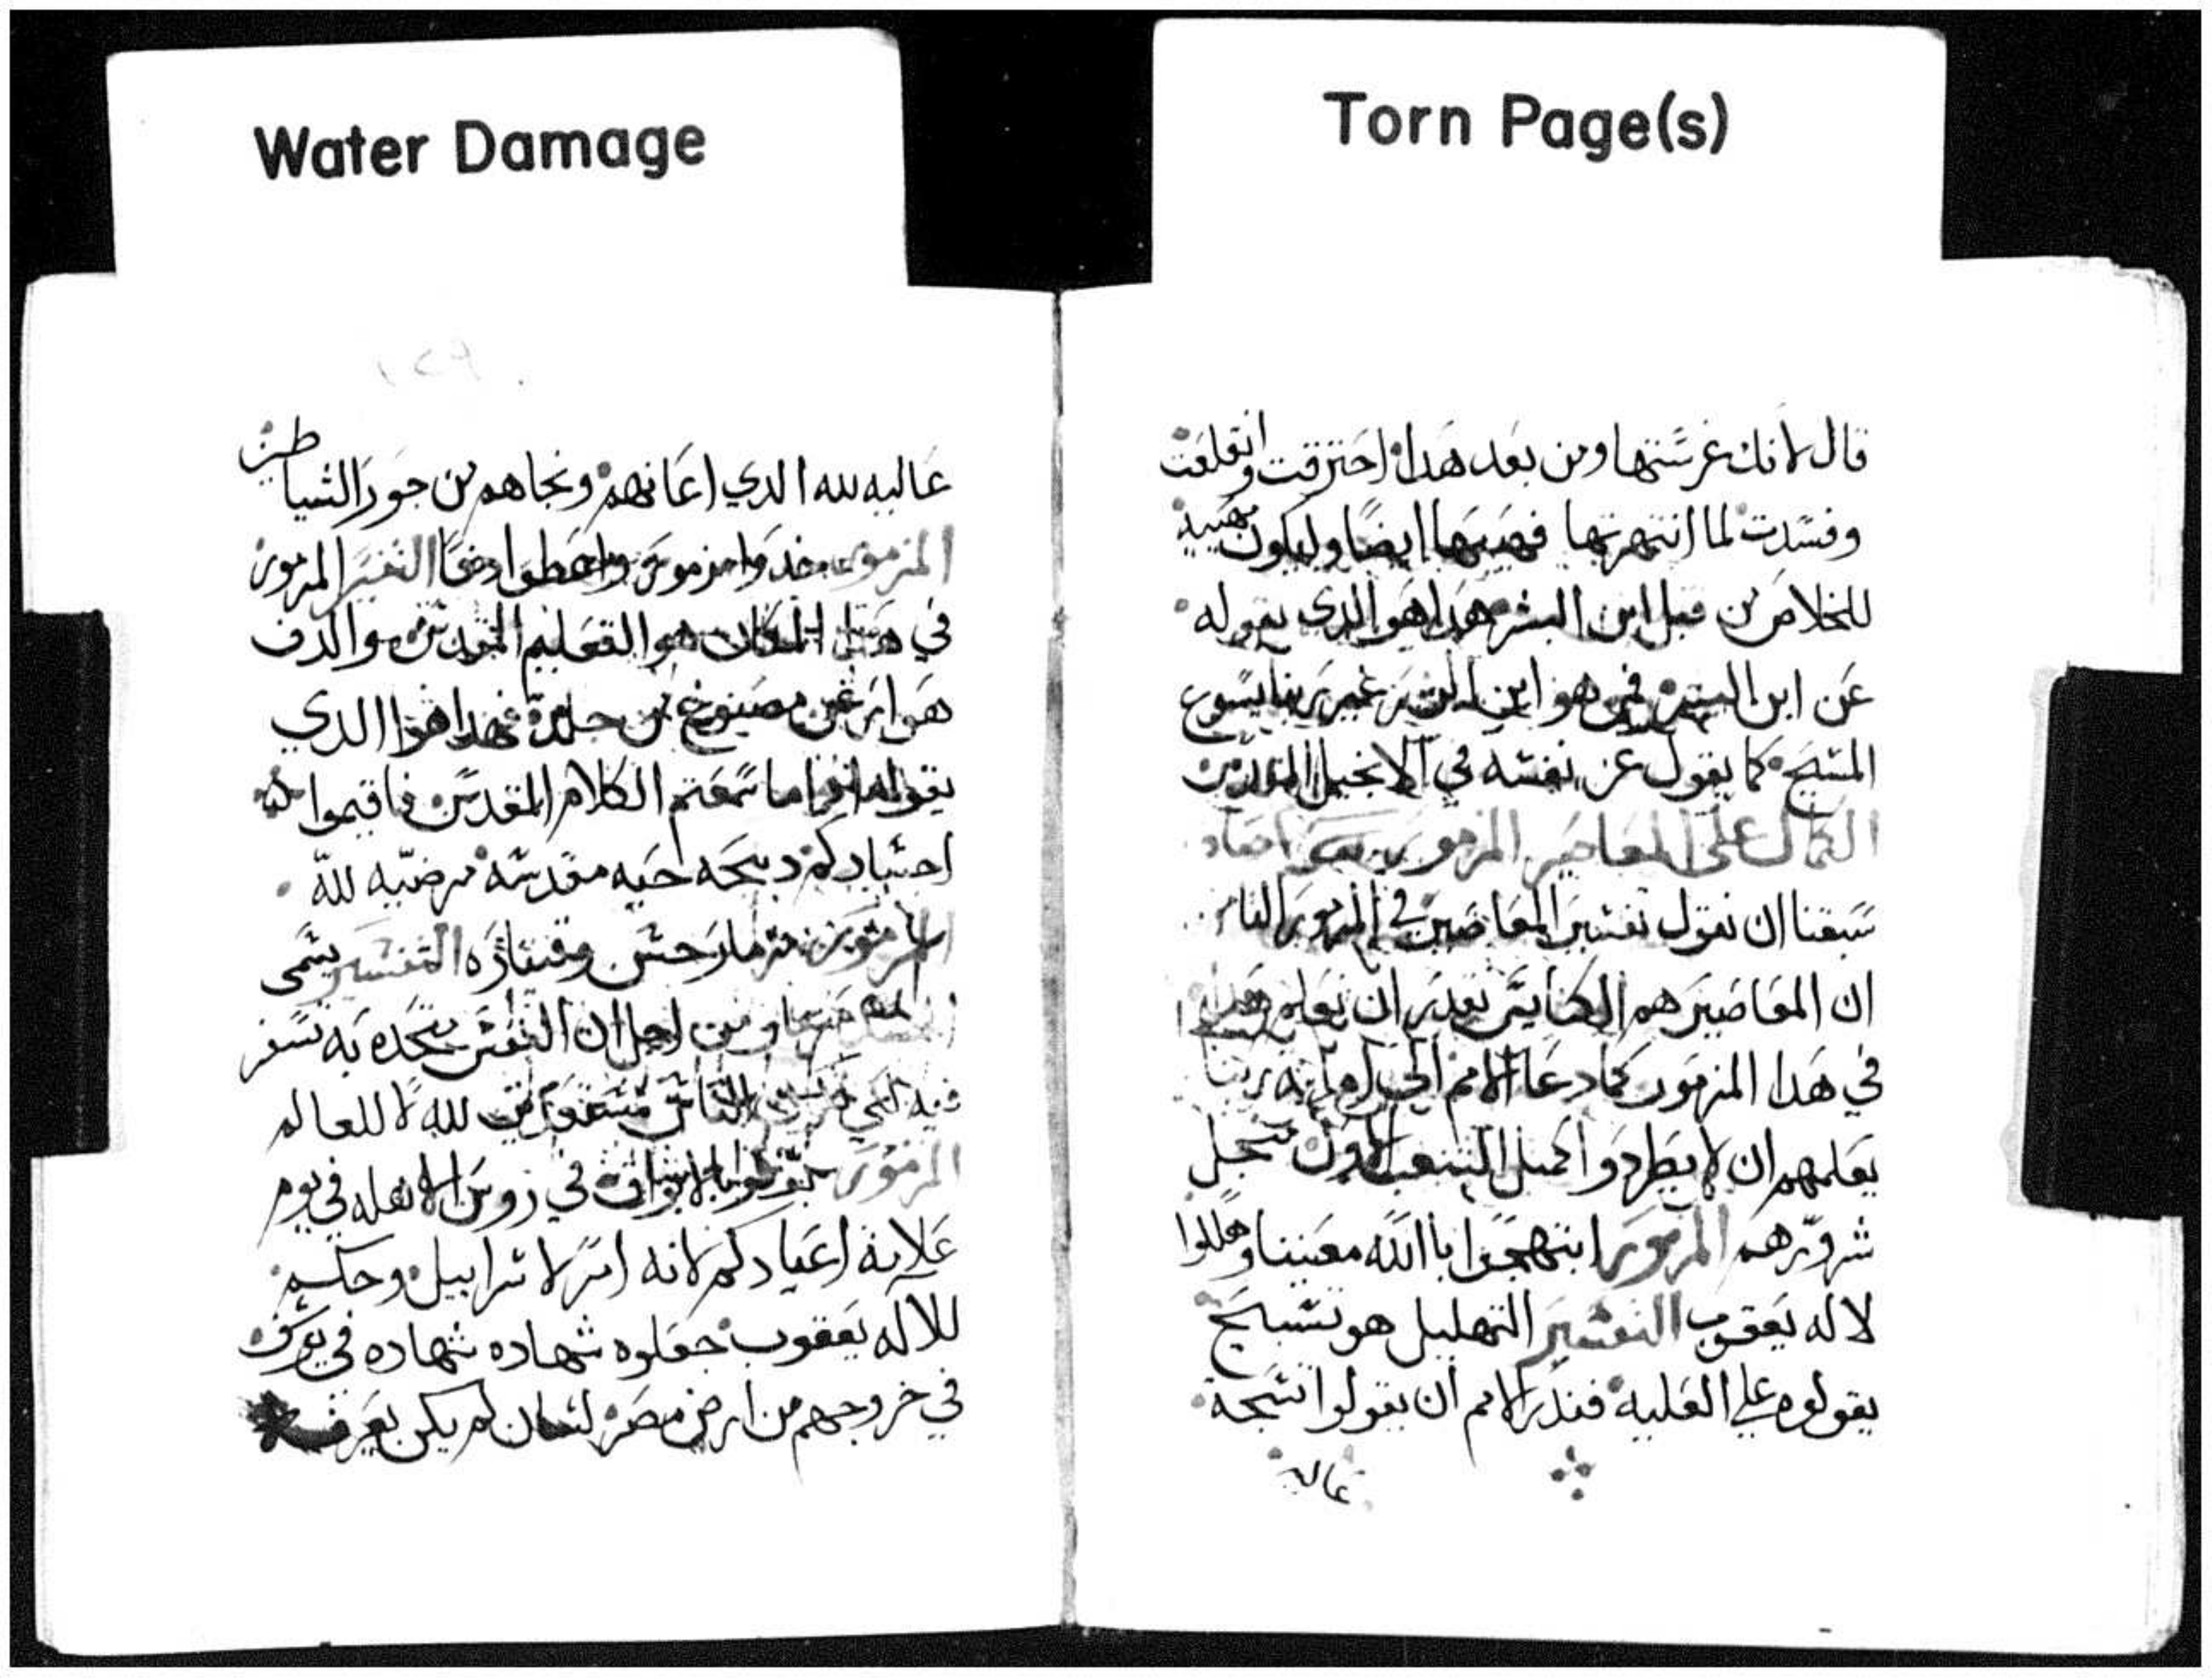 Torn Page(s)
قال لانك غرستها ومن بعد هدا احترقت وانقلعت
وفسدت لما انتهرتها فهيبها ايضا وليكون هيبه
للخلاص من قبل ابن البشر هدا هو الدي يقوله
عن ابن البشر من هو ابن البشر غير ربنا يسوع
المسيح كما يقول عن نفسه في الانجيل المقدس
الكمال على المعاصير المزمور
سبقنا ان نقول تفسير المعاصير في المزمور
ان المعاصير هم الكنايس نقدر ان نعلم
في هدا المزمور كما دعا الامم الي ربنا
يعلمهم ان لا يطردوا كمثل الشعب الاول من اجل
شرورهم المزمور ابتهجوا باالله معيننا وهللوا
لاله يعقوب التفسير التهليل هو تسبيح
يقولوه علي الغلبه فندر الامم ان يقولوا تسبحة
غالبه
Water Damage
١٥٩
غالبه لله الدي اعانهم ونجاهم من جور الشياطين
المزمور خدوا مزمور واعطوا دفا التفسير المزمور
في هدا المكان هو التعليم المقدس والدف
هو ارغن مصنوع من جلد فهدا هو الدي
يقوله ادا ما سمعتم الكلام المقدس فاقيموا
اجسادكم دبيحه حيه مقدسه مرضيه لله
المزمور مزمار حسن وقيثاره التفسير يسمى
ومن اجل ان النفس
الناس لله لا للعالم
المزمور بوقوا بالابواق في روس الاهله في يوم
علانية اعيادكم لانه امر لاسراييل وحكم
للاله يعقوب جعلوه شهاده شهاده في يوسف
في خروجهم من ارض مصر لسان لم يكن يعرف